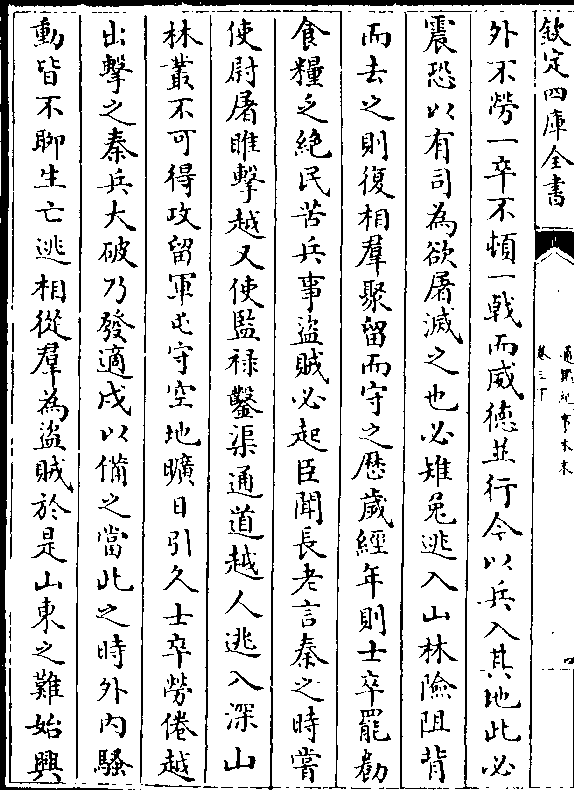 欽定四庫全書
通鑑紀事本末
卷三下
外不勞一卒不頓一戟而威德並行今以兵入其地此必
震恐以有司為欲屠滅之也必雉兔逃入山林險阻背
而去之則復相羣聚留而守之歴歲經年則士卒罷勌
食糧乏絶民苦兵事盜賊必起臣聞長老言秦之時嘗
使尉屠睢擊越又使監祿鑿渠通道越人逃入深山
林叢不可得攻留軍屯守空地曠日引久士卒勞倦越
出擊之秦兵大破乃發適戍以備之當此之時外内騷
動皆不聊生亡逃相從羣為盜賊於是山東之難始興